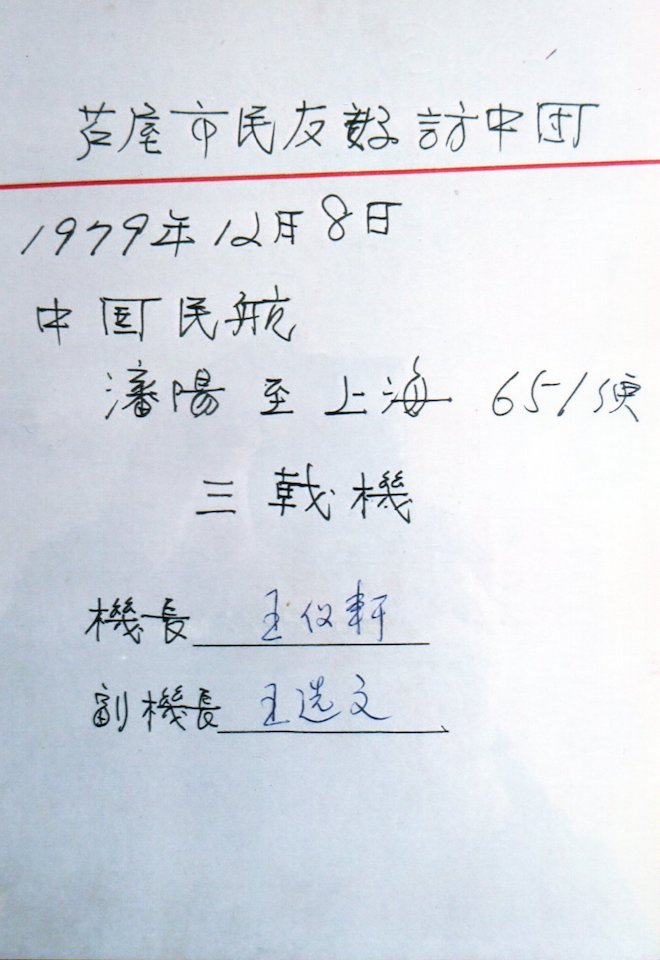 芦屋市民友好訪中団
1979年12月8日
中国民航
瀋陽 至 上海 651便
三戟機
機長 王仪轩
副機長 王选文